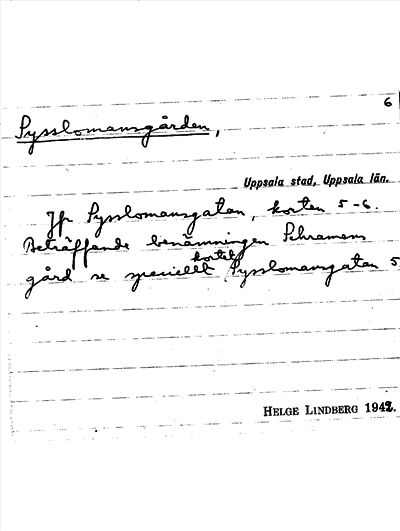 6
Pysslomansgården,
Uppsala stad, Uppsala län.
Jfr Pysslomansgatan, korten 5-6.
Beträffande benämningen Schramens
gård se speciellt kortet Pysslomansgatan 5
HELGE LINDBERG 1942.